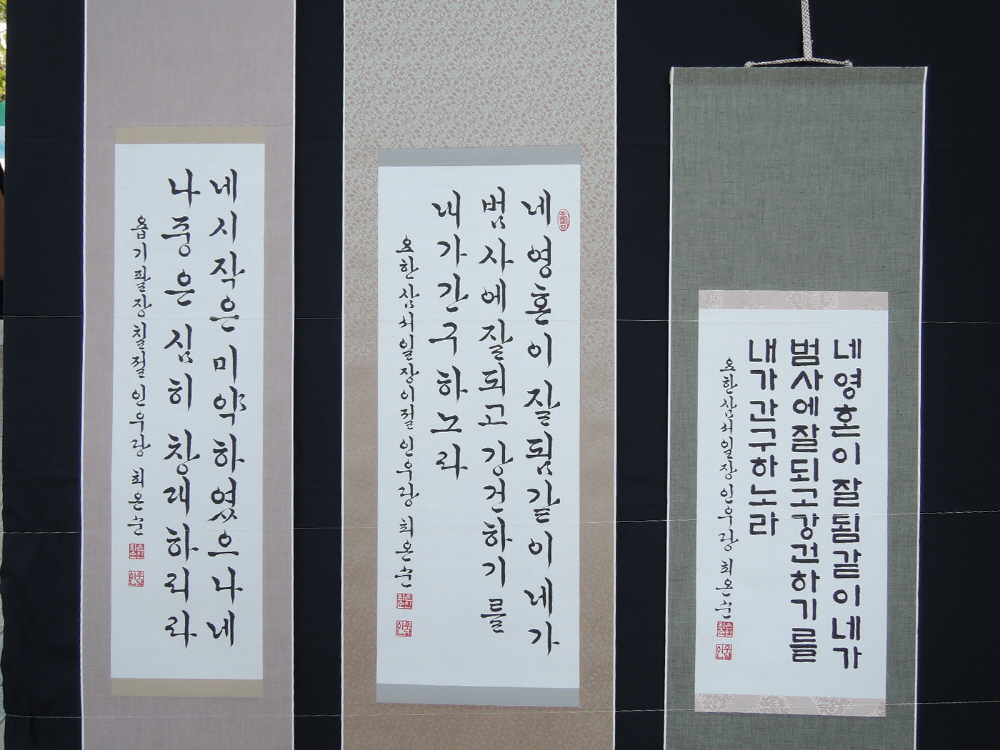 네시작은미약하였으나네
나중은심히창대하리라
욥기팔장칠절인우랑 최온순
네영혼이잘됨같이네가
범사에잘되고강건하기를
내가간구하노라
요한삼서일장이절 인우랑 최온순
네영혼이잘됨같이네가
범사에잘되고강건하기를
내가간구하노라
요한삼서일장인우랑 최온순